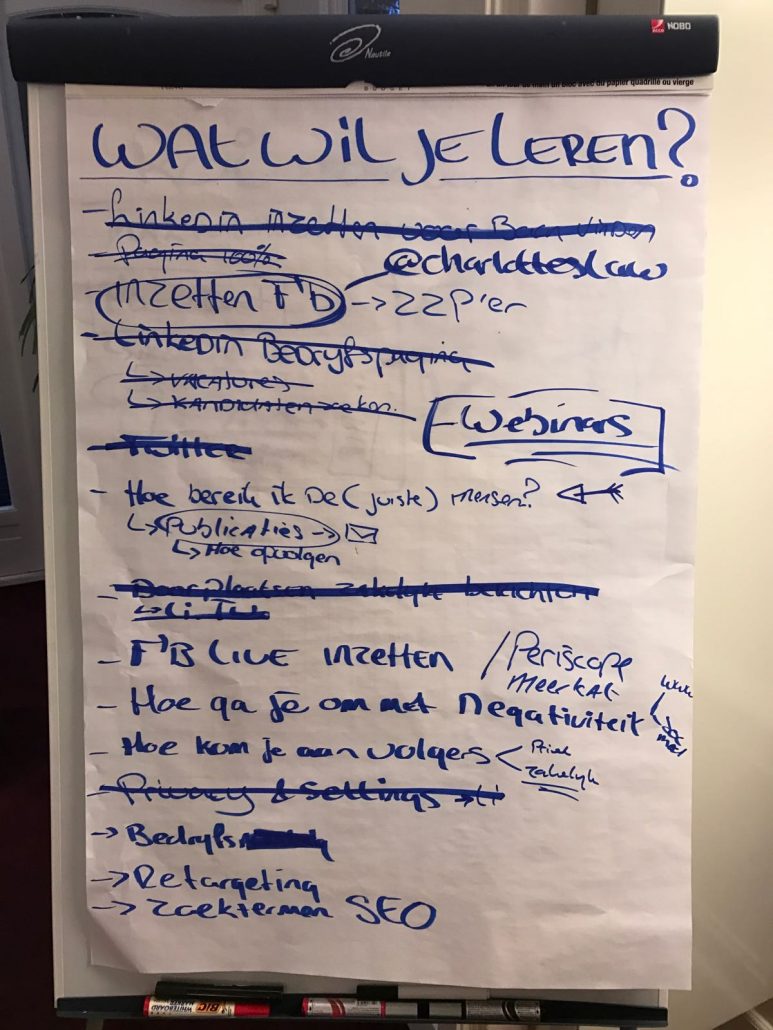 NOBO
Nautile
BUDGET
bloc avec du papier quadrillé ou vierge
WAT WIL JE LEREN?
- LinkedIn inzetten voor Baan vinden
- Pagina 100%
@charlotteslaw
- INZETTEN F'B → ZZP'er
- LinkedIn Bedrijfspagina
↳ VACATURES
↳ KANDIDATEN zoeken.
- Webinars
- Twitter
- Hoe bereik ik De (juiste) mensen?
↳ Publicaties →
↳ Hoe opvolgen
- Doorplaatsen zakelijke berichten
- F'B LIVE INZETTEN / Periscope
meerkat
- Hoe ga je om met Negativiteit
- Hoe kom je aan volgers < Privé
zakelijk
- Privacy & Settings → LI
→ Bedrijfs
→ Retargeting
→ Zoektermen SEO
BIC
WHITEBOARD
MARKER